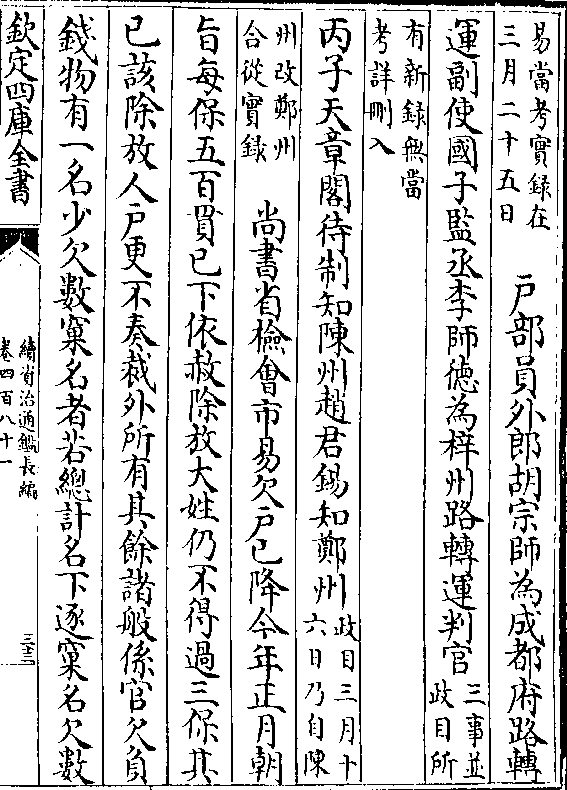 易當考實録在
三月二十五日
戸部員外郎胡宗師為成都府路轉
運副使國子監丞李師徳為梓州路轉運判官
三事並
政目所
有新録無當
考詳刪入
丙子天章閣待制知陳州趙君錫知鄭州
政目三月十
六日乃自陳
州改鄭州
合從實録
尚書省檢會市易欠戸已降今年正月朝
旨每保五百貫已下依赦除放大姓仍不得過三保其
已該除放人戸更不奏裁外所有其餘諸般係官欠負
錢物有一名少欠數窠名者若總計名下逐窠名欠數
欽定四庫全書
續資治通鑑長編
卷四百八十一